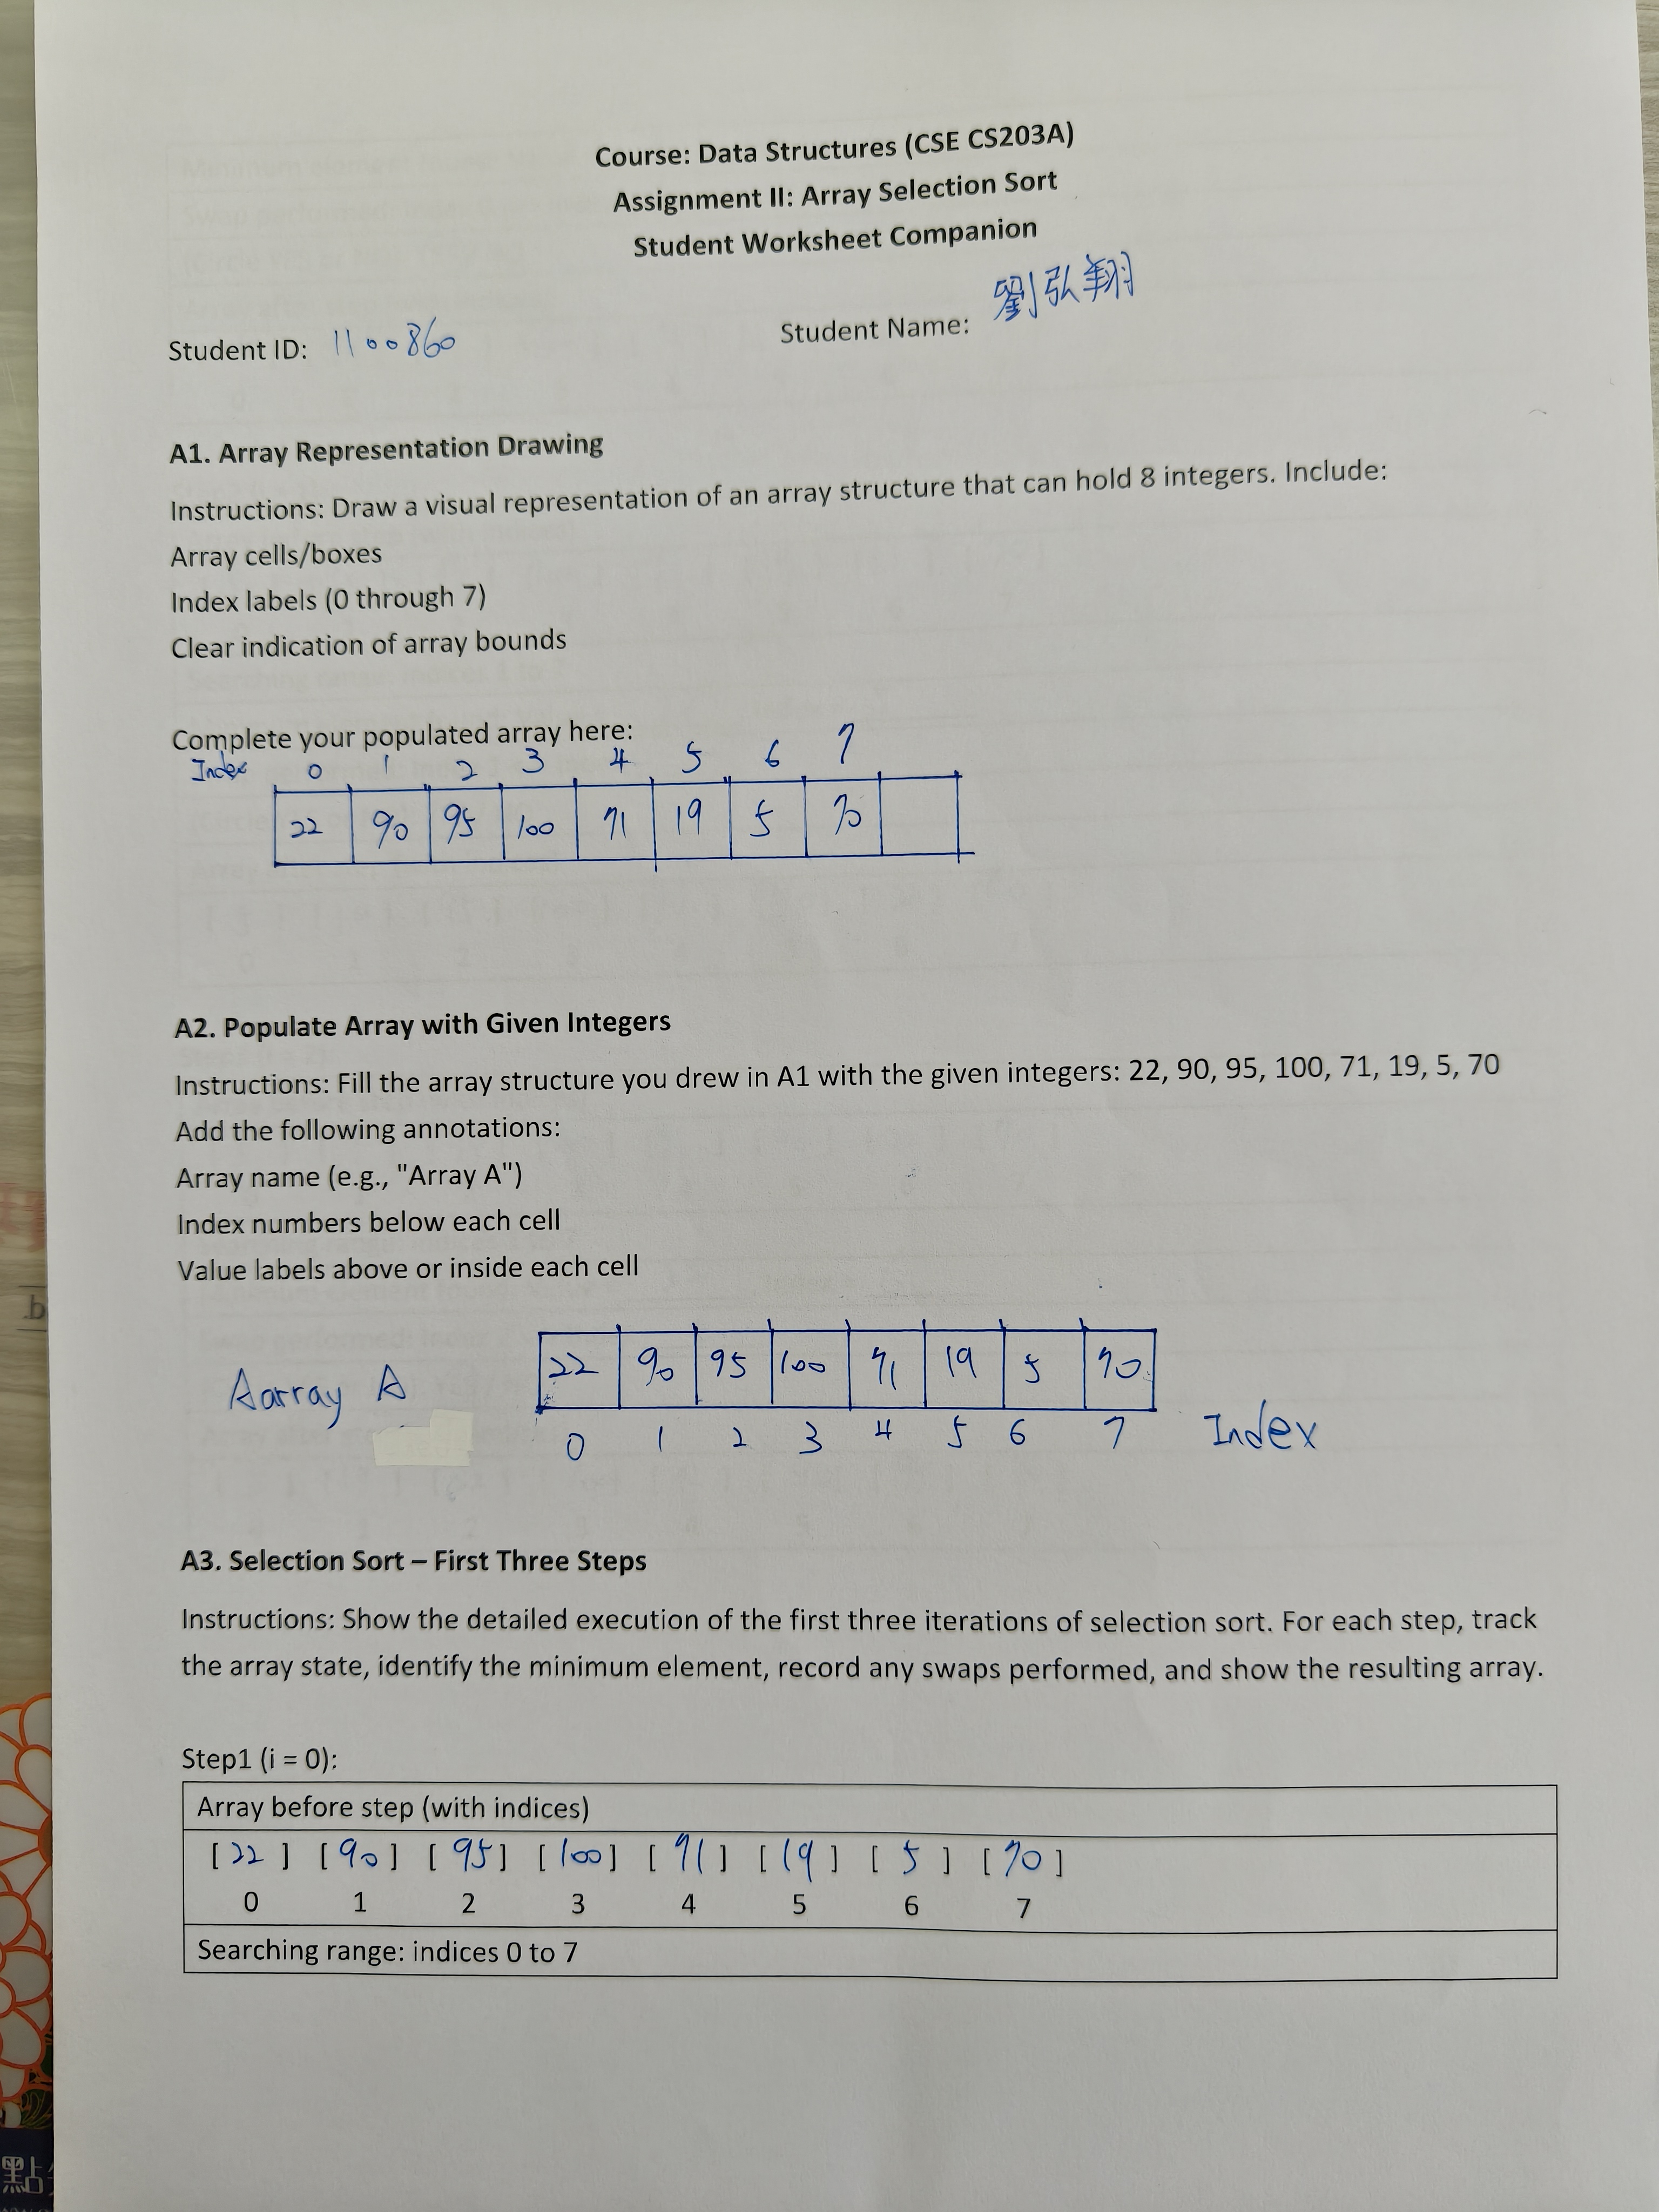 Course: Data Structures (CSE CS203A)
Assignment II: Array Selection Sort
Student Worksheet Companion
Student ID: 1100860 Student Name: 劉弘翔
A1. Array Representation Drawing
Instructions: Draw a visual representation of an array structure that can hold 8 integers. Include:
Array cells/boxes
Index labels (0 through 7)
Clear indication of array bounds
Complete your populated array here:
Index 0 1 2 3 4 5 6 7
22 90 95 100 71 19 5 70
A2. Populate Array with Given Integers
Instructions: Fill the array structure you drew in A1 with the given integers: 22, 90, 95, 100, 71, 19, 5, 70
Add the following annotations:
Array name (e.g., "Array A")
Index numbers below each cell
Value labels above or inside each cell
Aarray A 22 90 95 100 71 19 5 70
0 1 2 3 4 5 6 7 Index
A3. Selection Sort – First Three Steps
Instructions: Show the detailed execution of the first three iterations of selection sort. For each step, track
the array state, identify the minimum element, record any swaps performed, and show the resulting array.
Step1 (i = 0):
Array before step (with indices)
[ 22 ] [ 90 ] [ 95 ] [ 100 ] [ 71 ] [ 19 ] [ 5 ] [ 70 ]
0 1 2 3 4 5 6 7
Searching range: indices 0 to 7
點